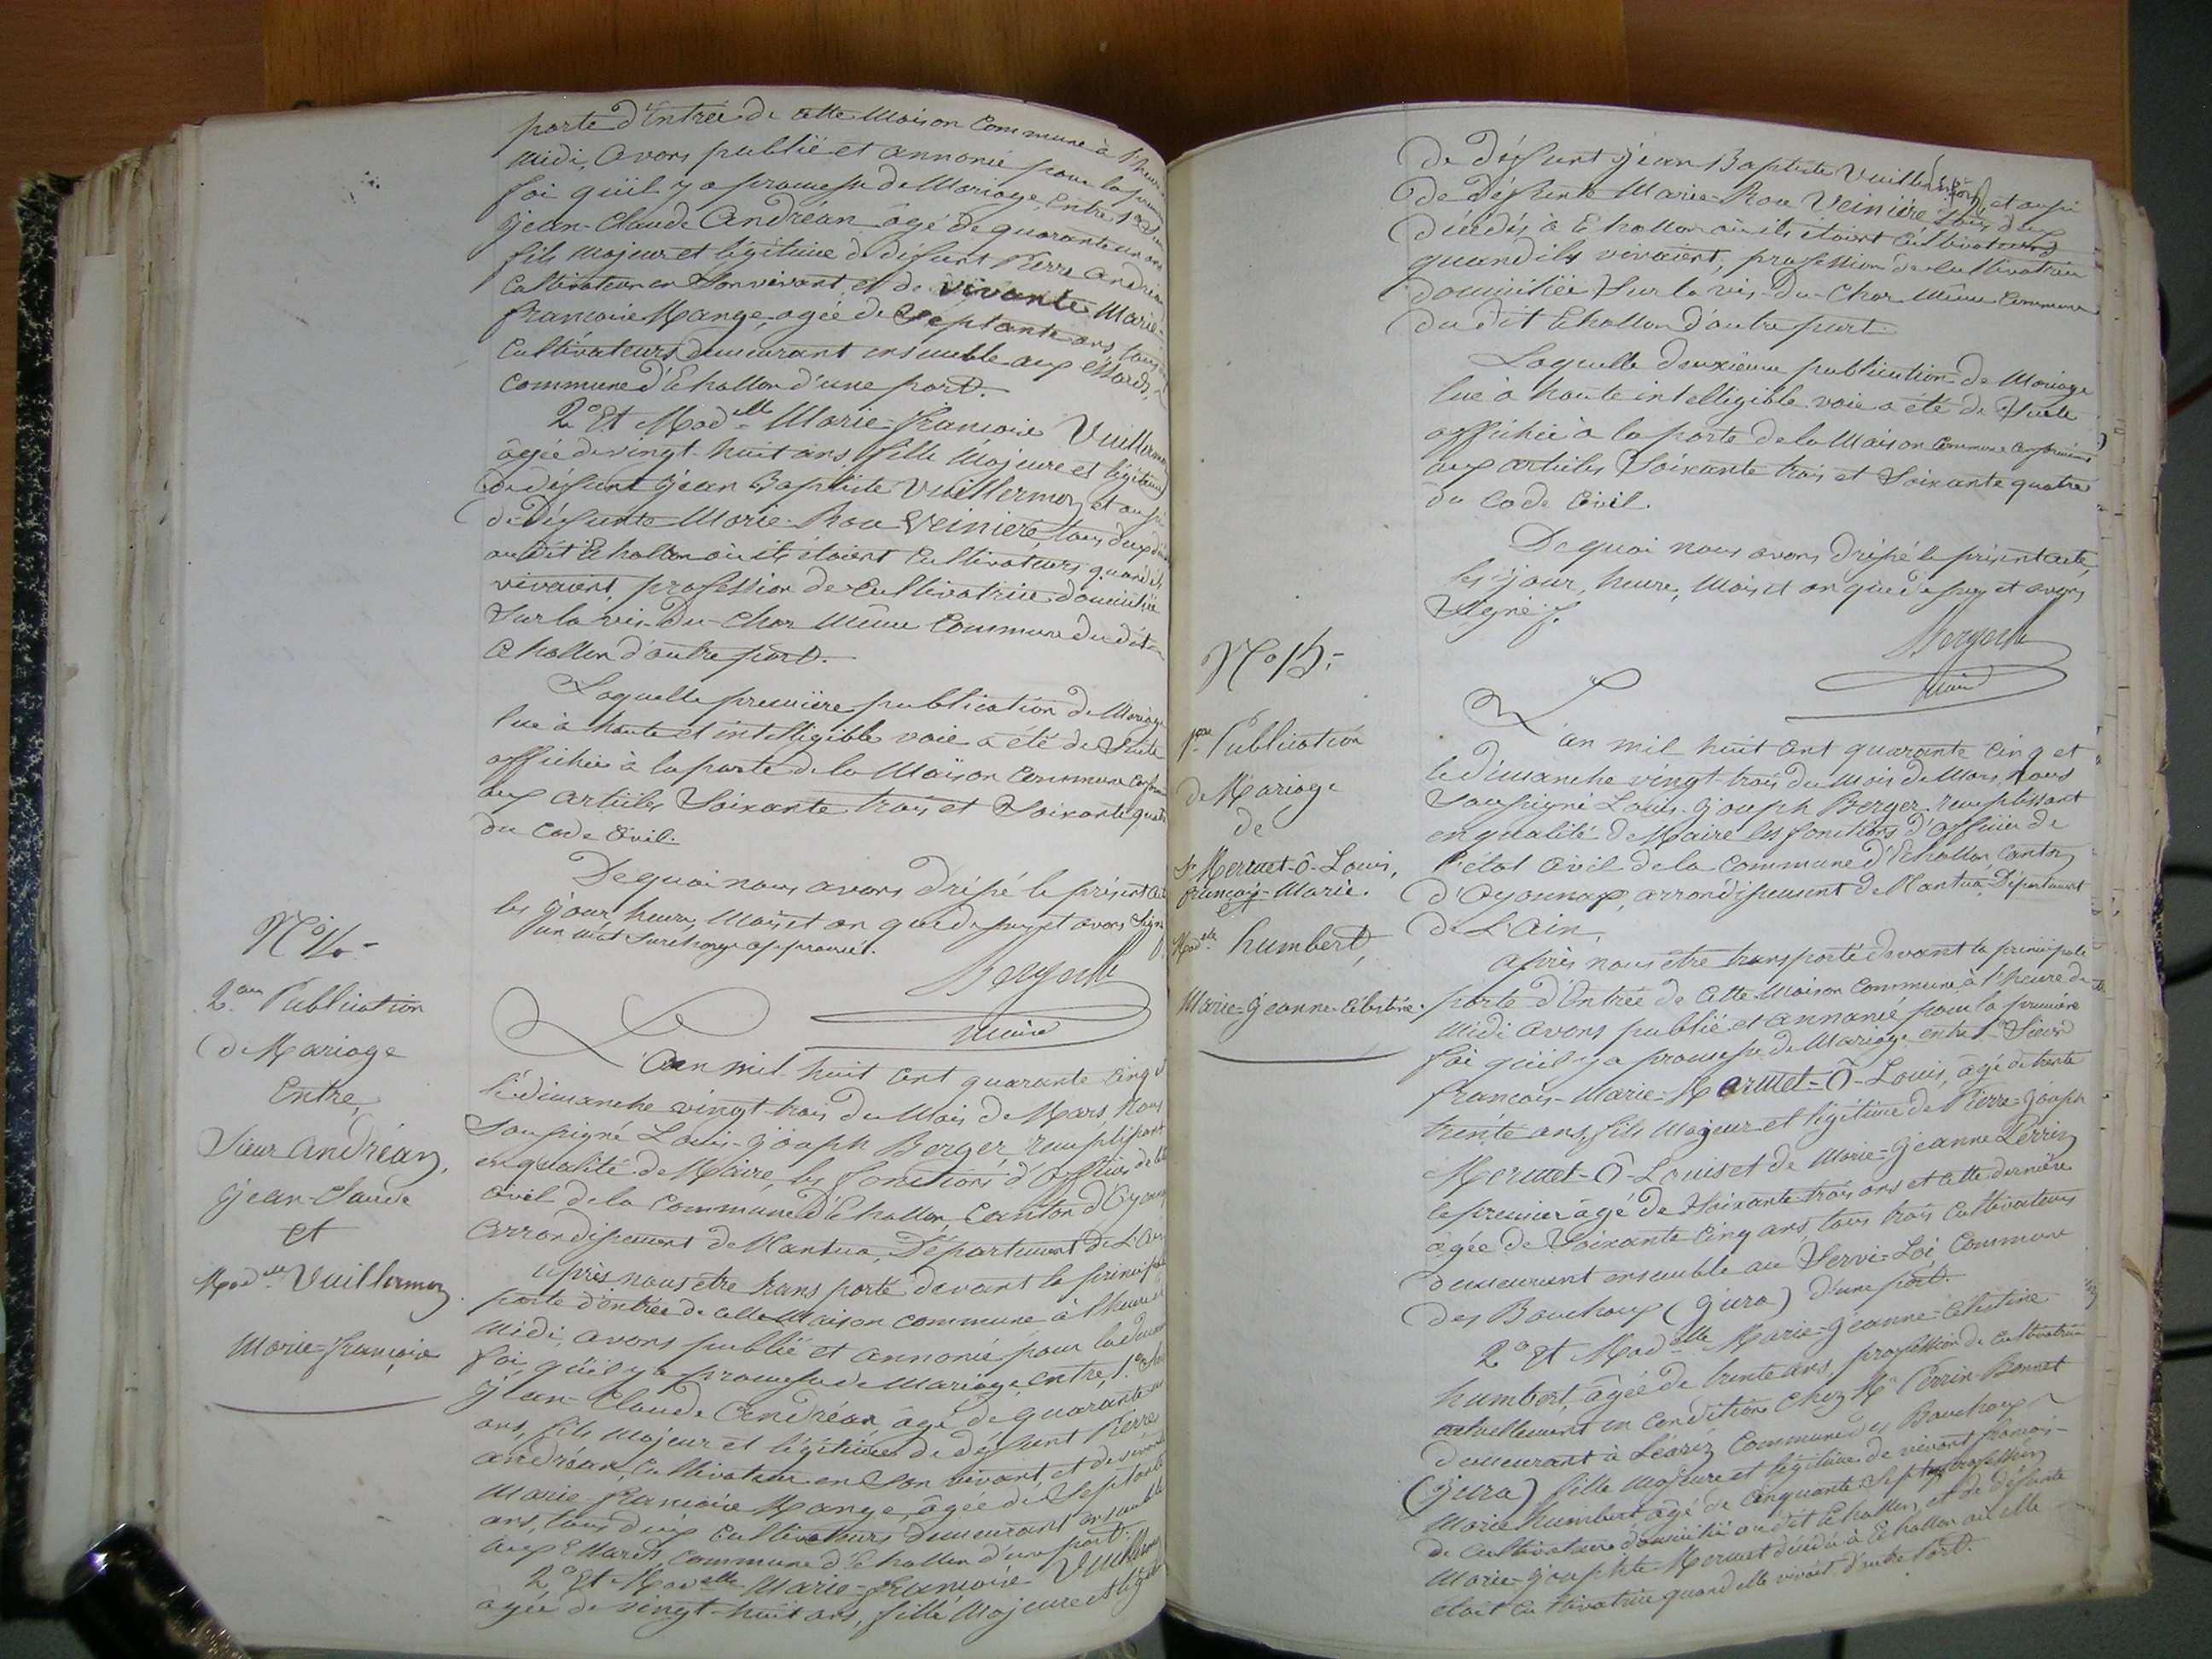 porte d'Entrée de cette Maison Commune à l'heure
Midi, avons publié et annoncé pour la
foi qu'il y a promesse de Mariage, Entre, 1°
Jean-Claude Andréan âgé de quarante un ans
fils Majeur et légitime de défunt Pierre Andréan
Cultivateur en Son vivant et de vivante Marie-
francoise Mange, agée de Septante ans, tous
Cultivateurs demeurant ensemble aux Essards,
Commune d'Echallon d'une part.
2° Et Mad.elle Marie-francoise Vuillermoz
âgée de vingt-huit ans, fille Majeure et légitime
de défunt Jean Baptiste Vuillermoz et aussi
de défunte Marie-Rose Veinière, tous deux
audit Echallon où ils étaient Cultivateurs quand ils
vivaient, profession de Cultivatrice domiciliée
Sur la vis-Du-Char Même Commune du dit
Echallon d'autre part.
Laquelle première publication de Mariage
lue à haute et intelligible voie a été de Suite
affichée à la porte de la Maison Commune
aux articles Soixante trois et Soixante quatre
du Code Civil.
De quoi nous avons dressé le présent acte
les jour, heure, Mois et an que dessus et avons Signé
un mot Surchargé approuvé.
Maire
N° 14.-
2.me Publication
de Mariage
Entre,
Sieur Andréan,
Jean-Claude
et
Mad.elle Vuillermoz
Marie-francoise
L'an mil huit cent quarante Cinq et
le dimanche vingt-trois du Mois de Mars, Nous
Soussigné Louis-Joseph Berger remplissant
en qualité de Maire, les fonctions d'Officier de l'état
Civil de la Commune d'Echallon, Canton d'Oyonnax
Arrondissement de Nantua, Département de L'Ain
après nous être transporté devant la principale
porte d'entrée de cette Maison Commune à l'heure de
Midi, avons publié et annoncé pour la
foi, qu'il y a promesse de Mariage entre, 1°
Jean-Claude Andréan âgé de quarante
ans, fils Majeur et légitime de défunt Pierre
Andréan, Cultivateur en Son vivant, et de vivante
Marie-francoise Mange, âgée de Septante
ans, tous deux Cultivateurs demeurant ensemble
aux Essards, Commune d'Echallon d'une part.
2° Et Mad.elle Marie-francoise
âgée de vingt-huit ans, fille Majeure et
de défunt Jean Baptiste Vuillermoz, et aussi
de défunte Marie-Rose Veinière tous deux
décédés à Echallon où ils étaient Cultivateurs
quand ils vivaient, profession de Cultivatrice
domiciliée Sur la vis-Du-Char Même Commune
du dit Echallon d'autre part.
Laquelle deuxième publication de Mariage
lue à haute intelligible voie a été de Suite
affichée à la porte de la Maison Commune Conformément
aux articles Soixante trois et Soixante quatre
du Code Civil.
De quoi nous avons dressé le présent acte,
les jour, heure, Mois et an que dessus et avons
Signé.
Maire
N° 15.-
1.ere Publication
de Mariage
de
S. Mermet-Ô-Louis,
françois-Marie.
et
Mad.elle humbert,
Marie-Jeanne-Célestine.
L'an mil huit cent quarante Cinq et
le dimanche vingt-trois du Mois de Mars, Nous
Soussigné Louis-Joseph Berger remplissant
en qualité de Maire les fonctions d'Officier de
l'état Civil de la Commune d'Echallon, Canton
d'Oyonnax, arrondissement de Nantua, Département
de L'Ain,
après nous être transporté devant la principale
porte d'Entrée de cette Maison Commune, à l'heure de
Midi avons publié et annoncé pour la première
foi qu'il y a promesse de Mariage entre 1° Sieur
françois-Marie-Mermet-Ô-Louis, âgé de trente
trente ans, fils Majeur et légitime de Pierre-Joseph
Mermet-Ô-Louis et de Marie-Jeanne Perrin
le premier âgé de Soixante-trois ans et cette dernière
âgée de Soixante Cinq ans, tous trois Cultivateurs
demeurant ensemble au Servi-Loi Commune
des Bouchoux (Jura) d'une part.
2° Et Mad.elle Marie-Jeanne-Célestine
humbert, âgée de trente ans, profession de Cultivatrice
actuellement en Condition chez M.r Perrin-Bonnet
demeurant à Léaria Commune des Bouchoux
(Jura) fille Majeure et légitime de vivant françois-
Marie humbert âgé de Cinquante Sept ans, profession
de Cultivateur domicilié audit Echallon, et de défunte
Marie-Josephte Mermet décédée à Echallon où elle
était Cultivatrice quand elle vivait d'autre part.